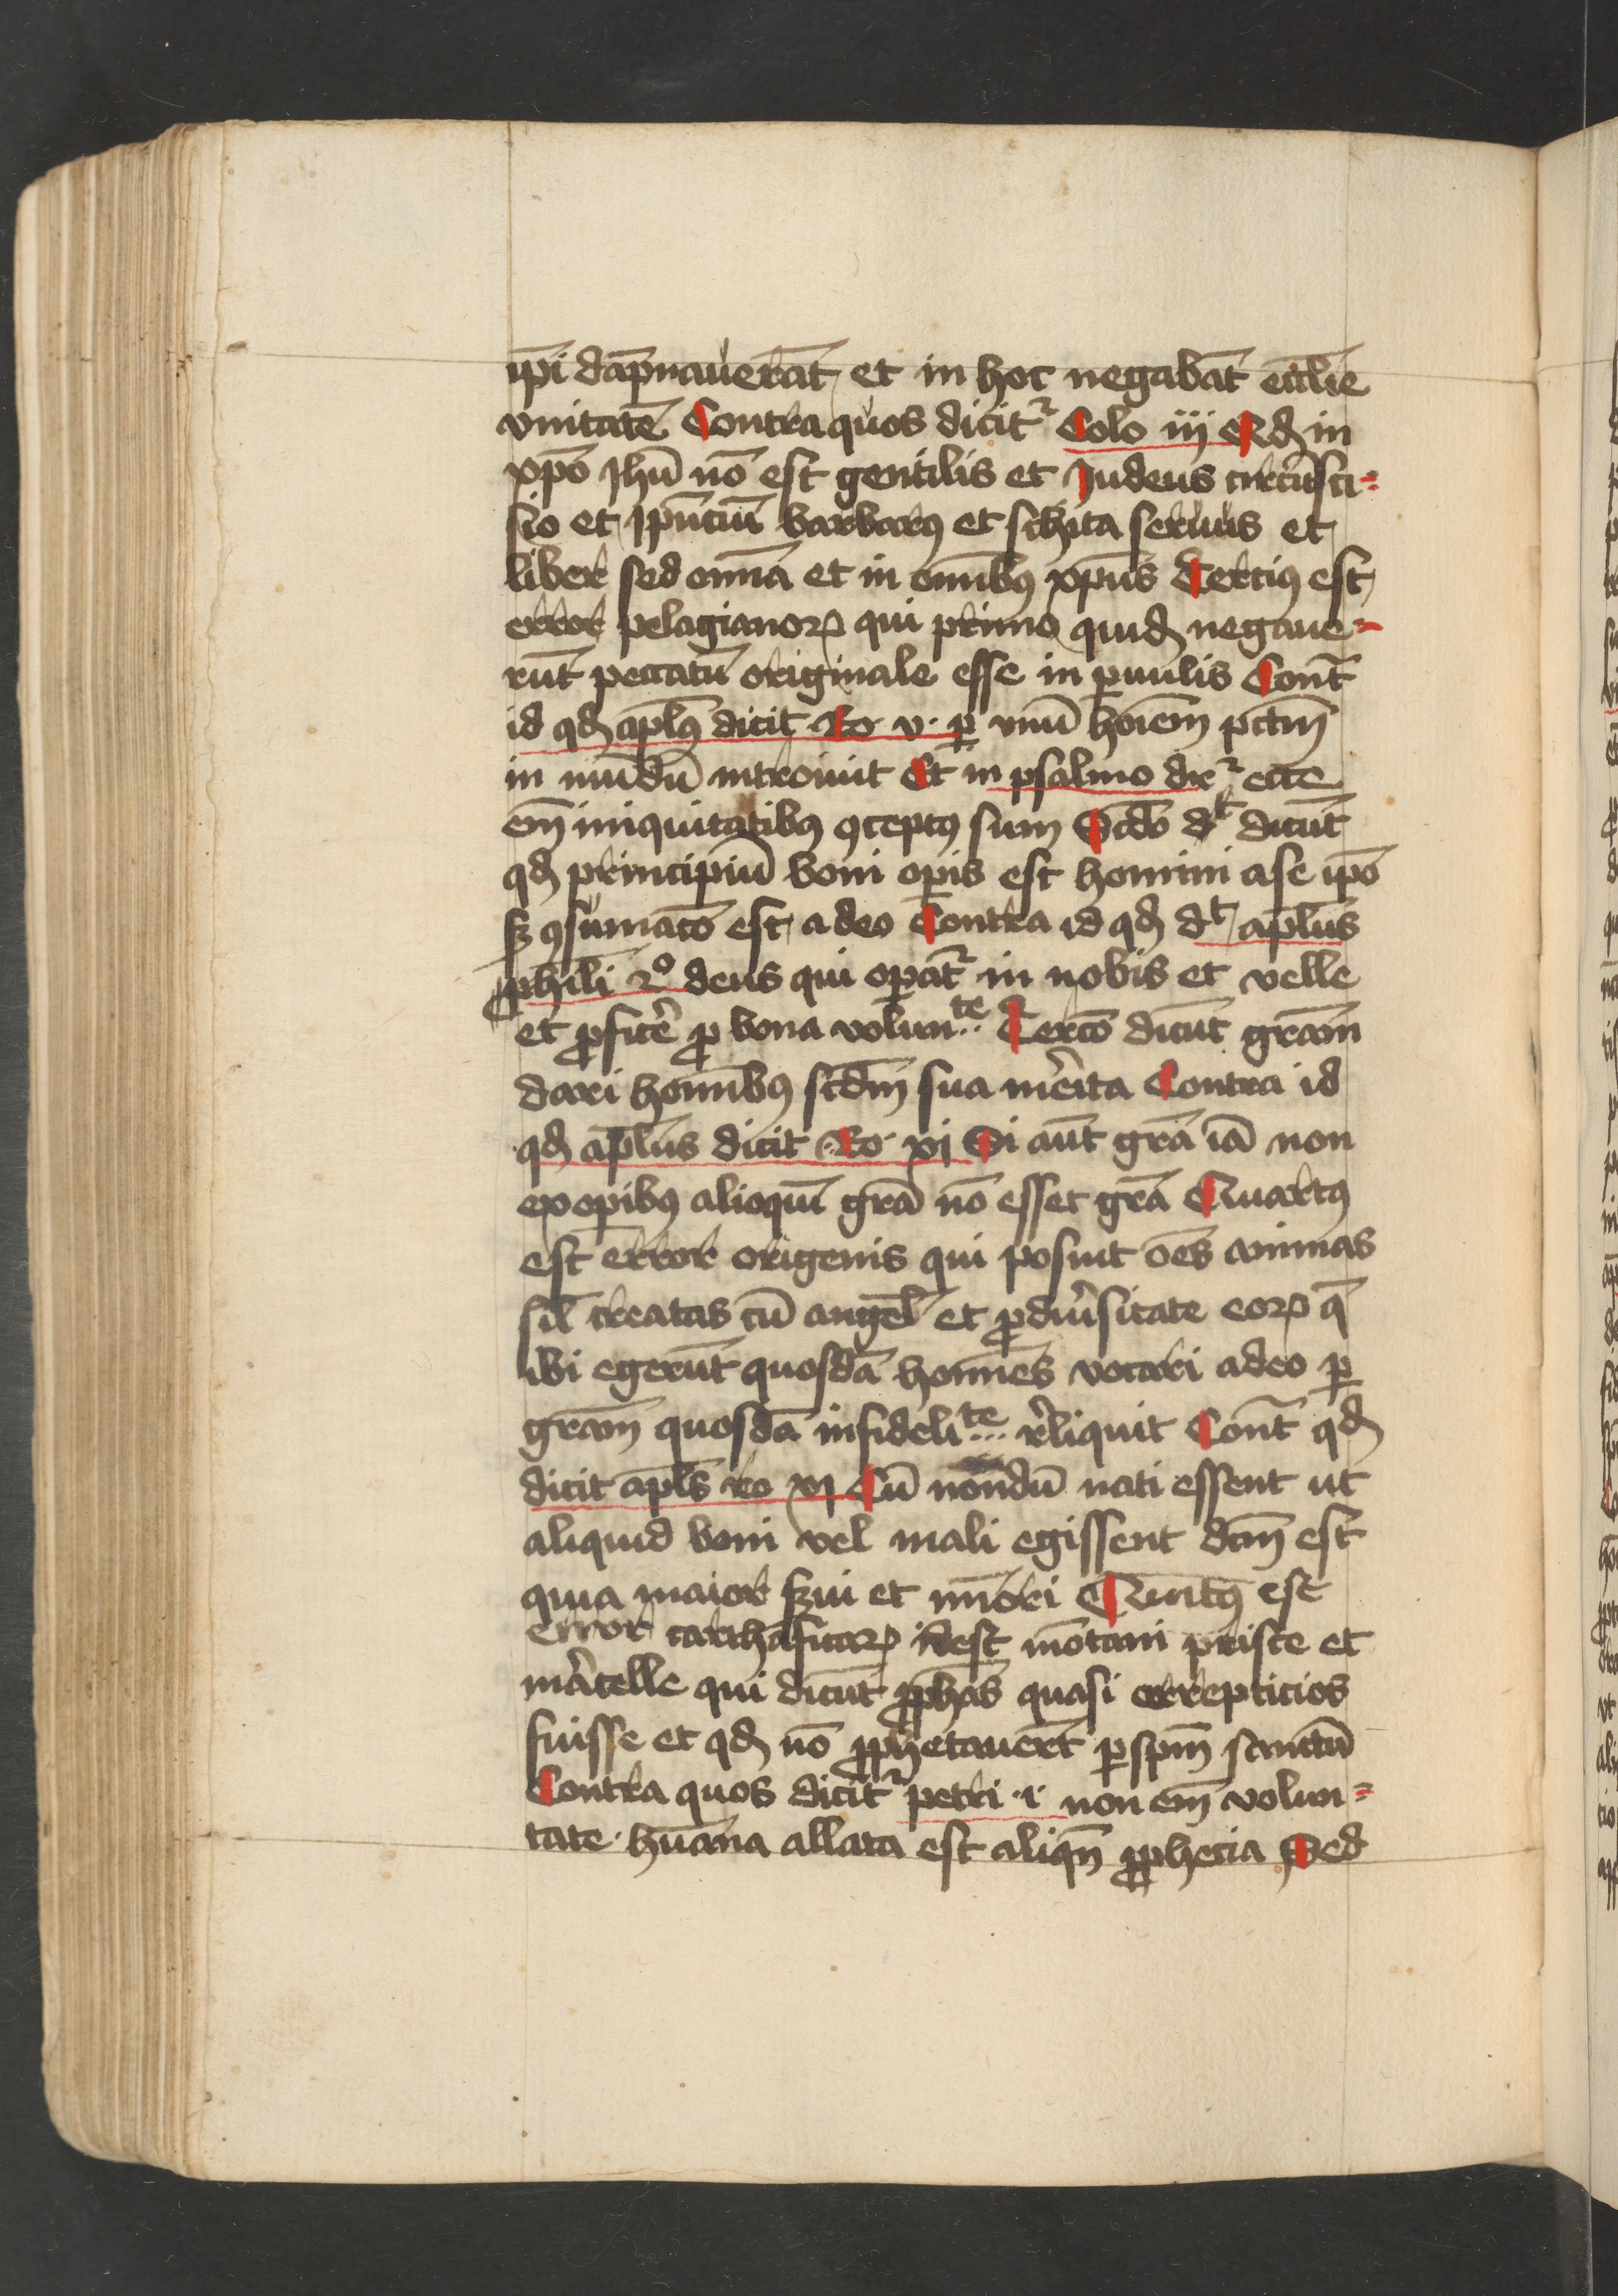 ip̄i dāpnauerāt et in hoc negabāt ecc̄lie
vnitatē Contra quos dicit᷑ Colo iij Qđ in
xp̄o Jhū nō est gentilis et Judeus circūsci⸗
sio et Ip̄uciū barbarꝰ et schita seruus et
liber sed om̄ia et in om̄ibꝰ xp̄us Terciꝰ est
error pelagianoꝝ qui primo quiđ negaue⸗
rūt peccatū originale esse in ꝑuulis Cont̄
id qđ ap̄lꝰ dicit Ro v ꝑ vnū hoīem pctm̄
in mūdū introiuit Et in psalmo dr᷑ ecce
em̄ iniquitatibꝰ ꝯceptꝰ sum Scd̄o dt dicūt
qđ principiū boni oꝑis est homini a se ip̄o
sꝫ ꝯsumac̄o est a deo Contra id qđ dt ap̄lus
phili 2º deus qui oꝑat᷑ in nobis et velle
et ꝑficē ꝓ bona volunte Terc̄o dicūt gr̄am
dari hom̄ibꝰ scd̄m sua mērita Contra id
qđ ap̄lus dicit Ro xj Si aūt gr̄a iā non
ex oꝑibꝰ alioquī gr̄a nō esset gr̄a Quartꝰ
est error origenis qui posuit ōes animas
sil̄ creatas cū angel̄ et ꝓ diūsitate eoꝝ q̄
ibi egerūt quosdā homīes vocari a deo ꝑ
gr̄am quosdā infidelite r̄liquit Cont̄ qđ
dicit ap̄ls ro xj Cū nondū nati essent ut
aliquid boni vel mali egissent dc̄m est
quia maior sꝫui et minori Quītꝰ est
error cathafricaꝝ id est mōtani prisce et
mārcelle qui dicūt ꝓph̄as quasi arrepticios
fuisse et qđ nō ꝓphetauer̄t ꝑ sp̄m sanctū
Contra quos dicit᷑ petri i non em̄ volun⸗
tate hūana allata est aliqn̄ ꝓphecia Sed